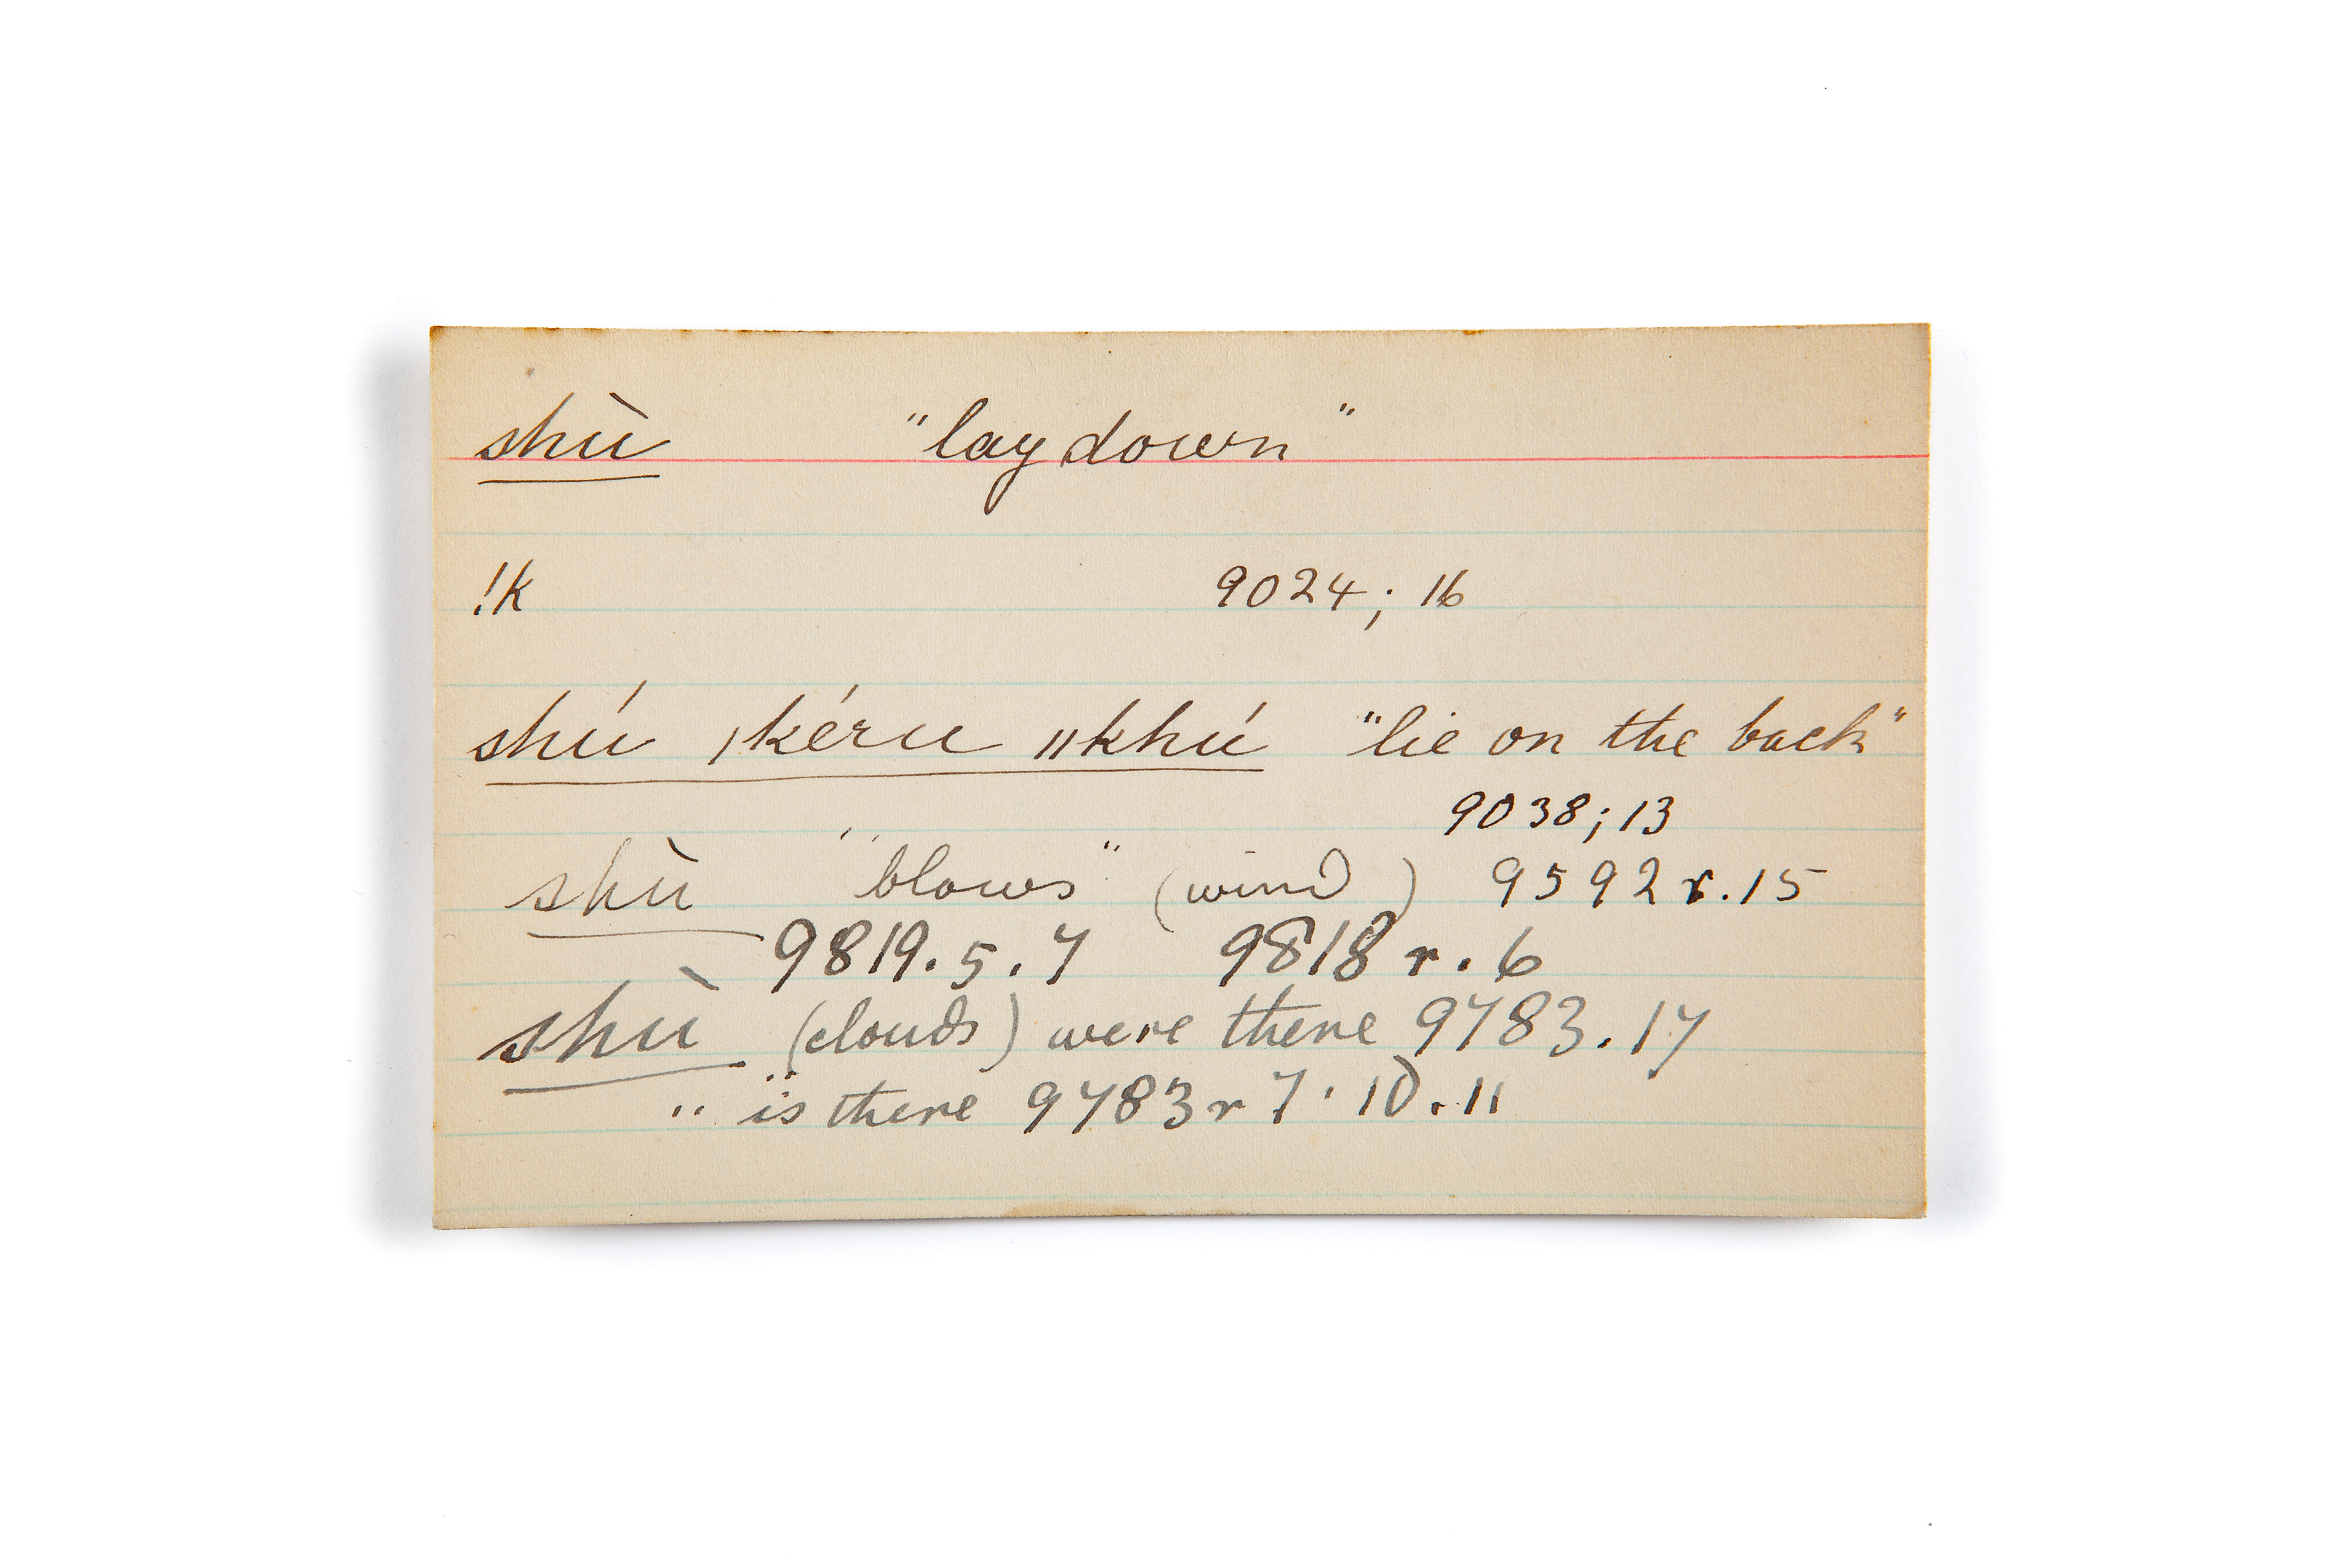 shù "lay down"
!k 9024; 16
shú ǀkéru ǁkhú "lie on the back"
9038; 13
shù "blows" (wind) 9592 r. 15
9819. 5. 7 9818 r. 6
shù (clouds) were there 9783. 17
" is there 9783 r 7. 10. 11